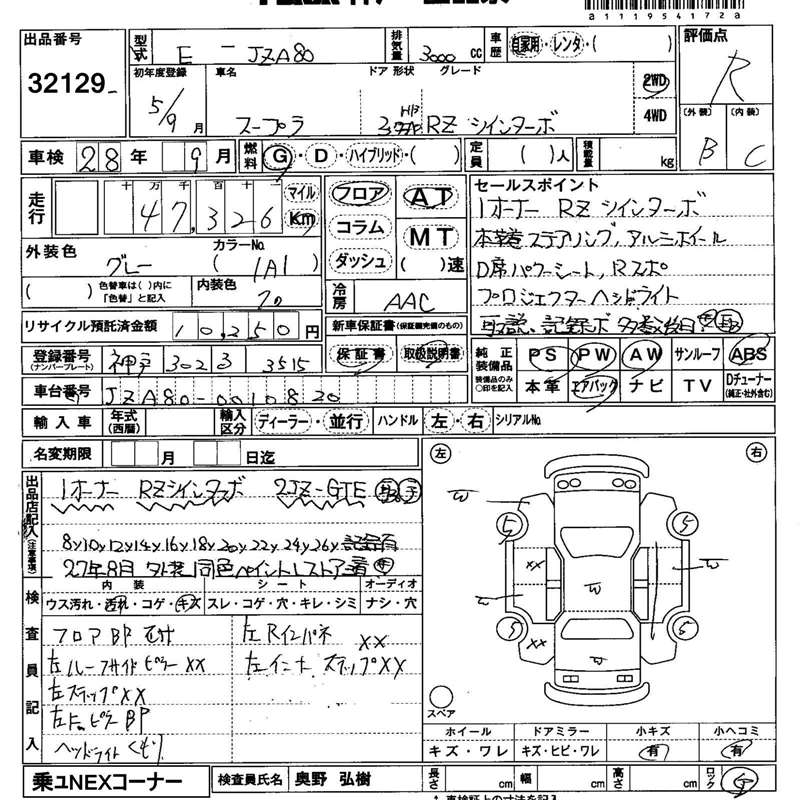 a111954172a
出品番号 型式 E - JZA80 排気量 3000 cc 車歴 自家用・レンタ・( ) 評価点
32129 R
初年度登録 車名 ドア 形状 グレード 2WD
5/9 月 スープラ 3 HB RZ ツインターボ 4WD (外装) (内装)
B C
車検 28 年 9 月 燃料 G・D・ハイブリッド・( ) 定員 ( )人 積載量 kg
走行 十 万 千 百 十 マイル フロア AT セールスポイント
47,326 Km コラム MT 1オーナー RZ ツインターボ
ダッシュ ( )速 本革巻ステアリング, アルミホイール
外装色 カラーNo.
グレー (1A1) D席パワーシート, Rスポ
( ) 色替車は( )内に「色替」と記入 内装色 冷房 AAC プロジェクターヘッドライト
リサイクル預託済金額 10,250 円 新車保証書(保証継続済のもの) 取説・記録ボ
登録番号 (ナンバープレート) 神戸 302 3515 保証書 取扱説明書 純正装備品 PS PW AW サンルーフ ABS
車台番号 JZA80-0010820 装備品のみ○印を記入 本革 エアバック ナビ TV Dチューナー(純正・社外含む)
輸入車 年式(西暦) 輸入区分 ディーラー・並行 ハンドル 左・右 シリアルNo.
名変期限 月 日迄 左 右
出品店記入(注意事項) 1オーナー RZツインターボ 2JZ-GTE
8y10y12y14y16y18y20y22y24y26y 記録有
27年8月 外装 同色ペイントレストア済
検査員記入 内装 シート オーディオ
ウス汚れ・汚れ・コゲ・キズ スレ・コゲ・穴・キレ・シミ ナシ・穴
フロア BP 左Rインパネ XX
左ルーフサイドピラー XX 左インナーステップ XX
左ステップ XX
左 ピラー BP
ヘッドライト くもり
5 5 5 5
XX
XX
W W W W W
スペア
ホイール ドアミラー 小キズ 小ヘコミ
キズ・ワレ キズ・ヒビ・ワレ 有 有
乗ユNEXコーナー 検査員氏名 奥野 弘樹 長さ cm 幅 cm 高さ cm ロック G